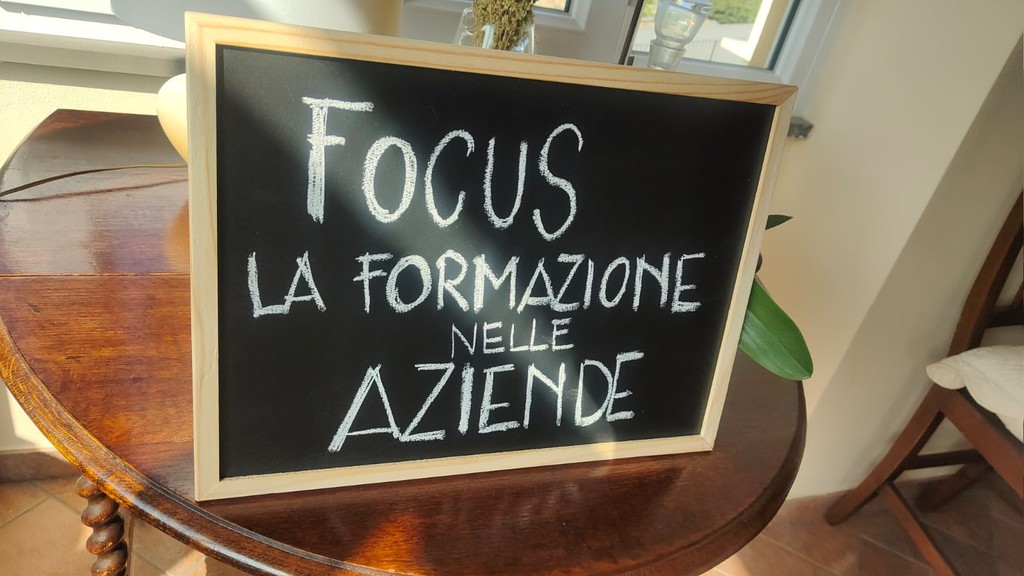 FOCUS
LA FORMAZIONE
NELLE
AZIENDE